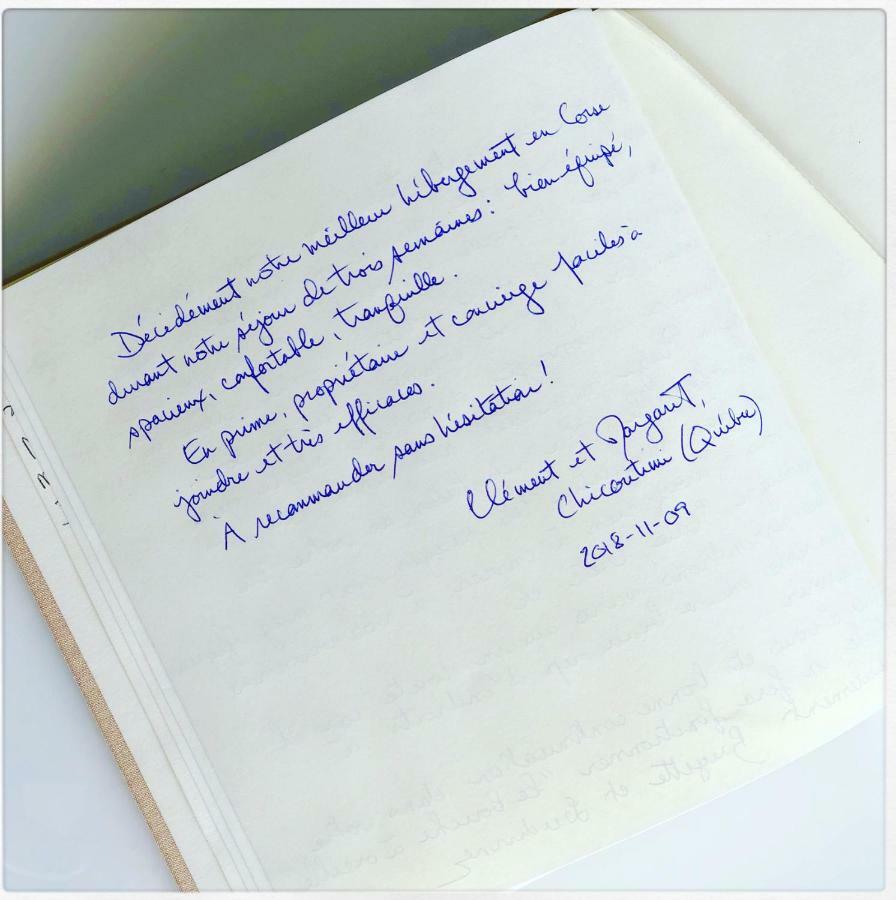 Décidément notre meilleur hébergement en Corse
durant notre séjour de trois semaines : bien équipé,
spacieux, confortable, tranquille.
En prime, propriétaire et concierge faciles à
joindre et très efficaces.
À recommander sans hésitation !
Clément et Margaret,
Chicoutimi (Québec)
2018-11-09